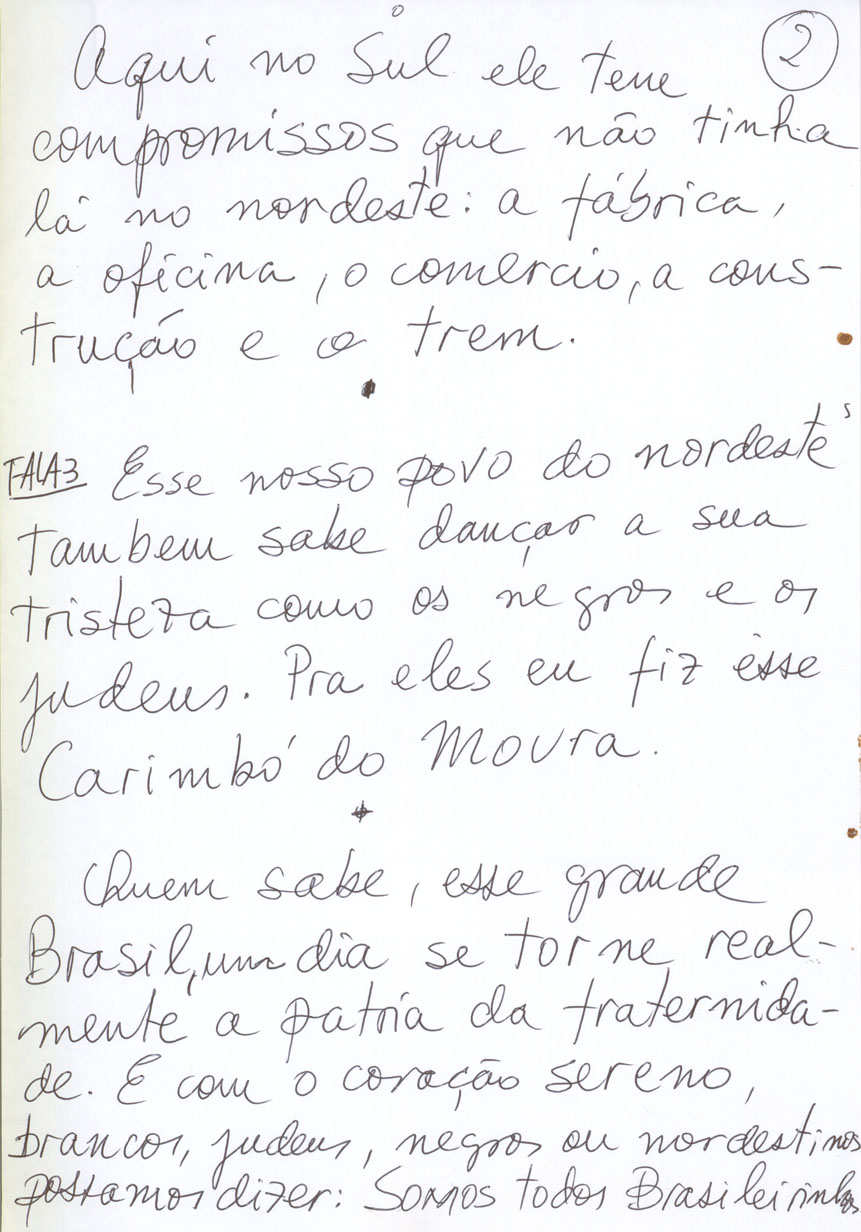 2
Aqui no Sul ele teve
compromissos que não tinha
lá no nordeste: a fábrica,
a oficina, o comercio, a cons-
trução e o trem.
FALA3 Esse nosso povo do nordeste
tambem sabe dançar a sua
tristeza como os negros e os
judeus. Pra eles eu fiz esse
Carimbó do Moura.
Quem sabe, esse grande
Brasil, um dia se torne real-
mente a patria da fraternida-
de. E com o coração sereno,
brancos, judeus, negros ou nordestinos
possamos dizer: Somos todos Brasileirinhos